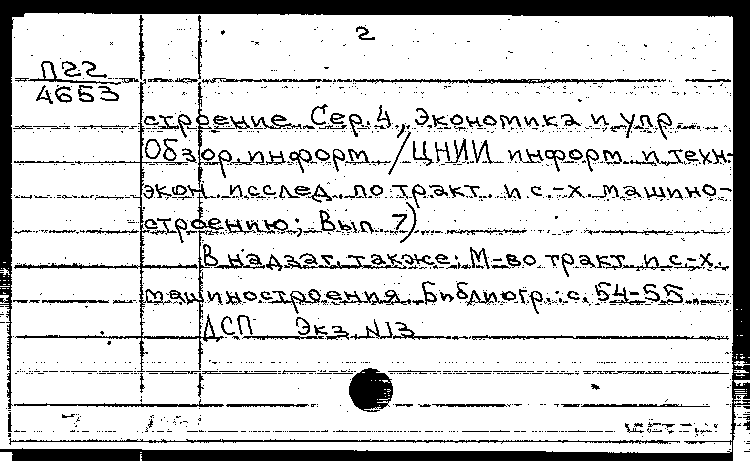 2
П22
4653
строение. Сер. 4, Экономика и упр.
Обзор. информ. / ЦНИИ информ. и техн.-
экон. исслед. по тракт. и с.-х. машино-
строению; Вып. 7)
В надзаг. также: М-во тракт. и с.-х.
машиностроения. Библиогр.: с. 54-55
ДСП Экз. N13